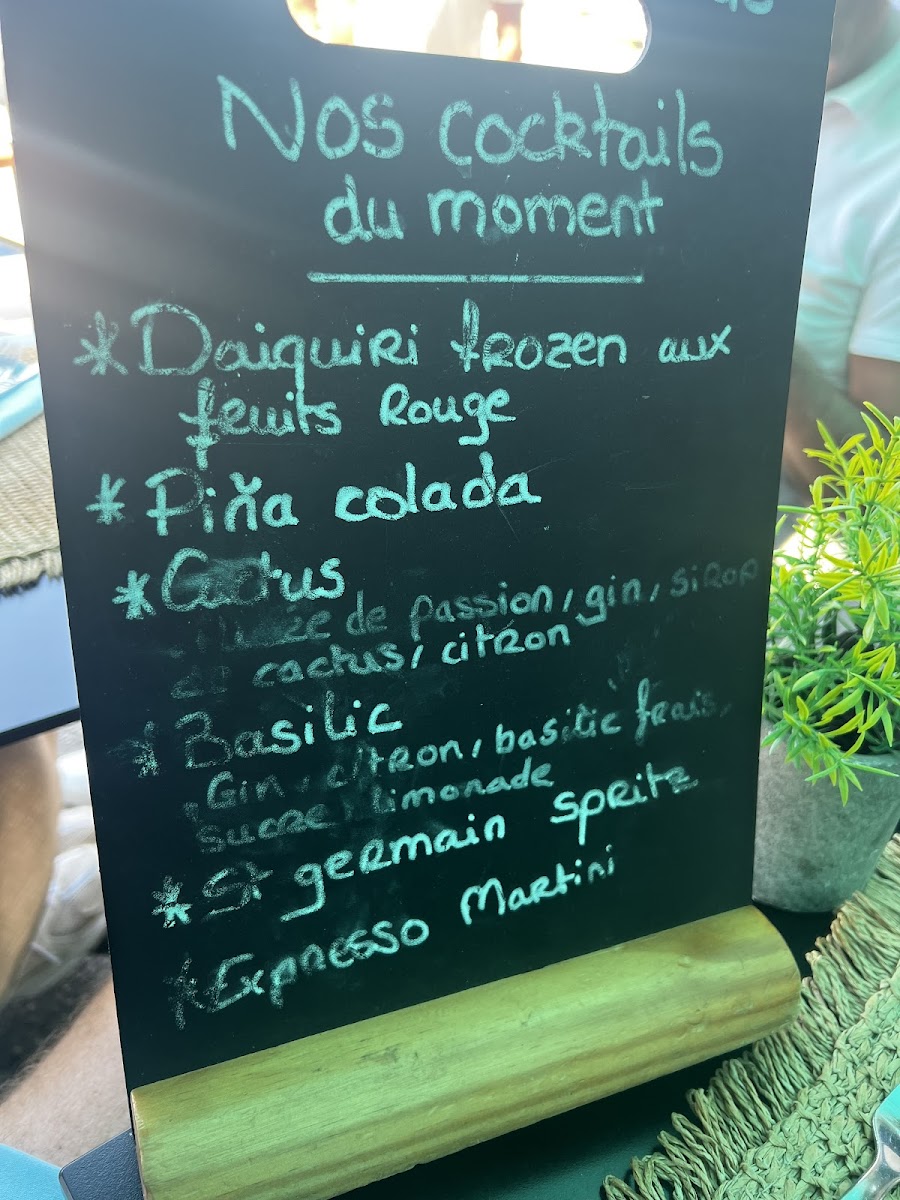 Nos cocktails
du moment
* Daiquiri frozen aux
fruits Rouge
* Piña colada
* Cactus
de passion, gin, sirop
de cactus, citron
* Basilic
Gin, citron, basilic frais,
sucre, limonade
* St germain spritz
* Expresso Martini